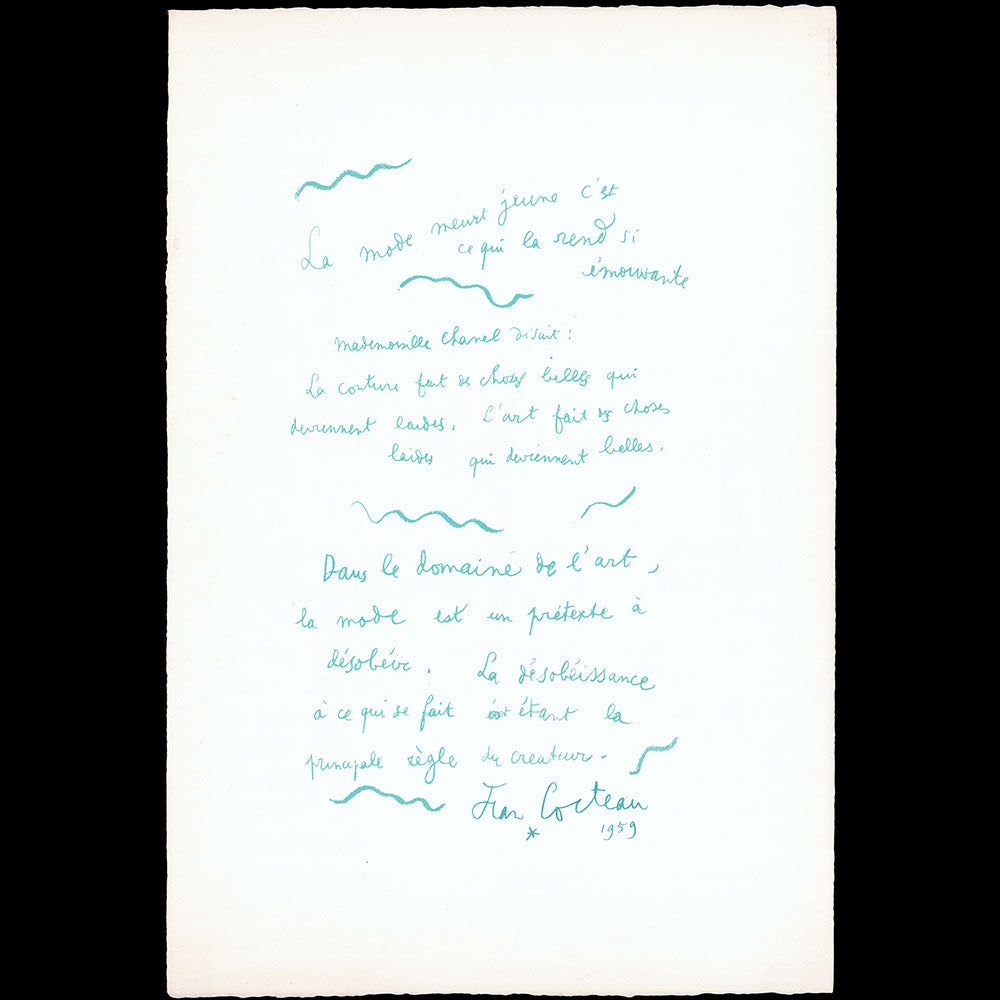 La mode meurt jeune c'est
ce qui la rend si
émouvante
Mademoiselle Chanel disait :
La couture fait des choses belles qui
deviennent laides. L'art fait des choses
laides qui deviennent belles.
Dans le domaine de l'art,
la mode est un prétexte à
désobéir. La désobéissance
à ce qui se fait étant la
principale règle du créateur.
Jean Cocteau
* 1959